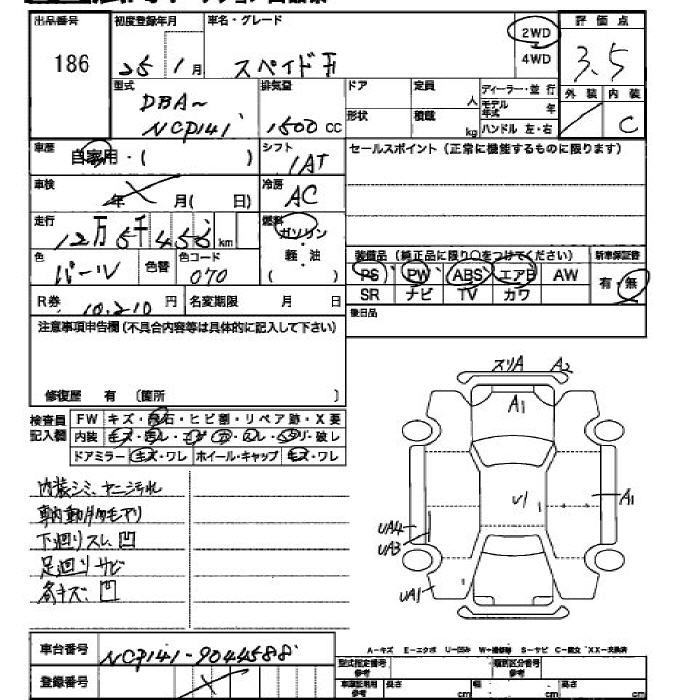 出品番号
186
初度登録年月
25 1月
車名・グレード
スペイド F
2WD
4WD
評価点
3.5
外装
内装
C
型式
DBA~
NCP141
排気量
1500 cc
ドア
定員
人
ディーラー・並行
モデル年式
年
形状
積載
kg
ハンドル 左・右
車歴
自家用・( )
シフト
1AT
セールスポイント(正常に機能するものに限ります)
車検
年 月( 日)
冷房
AC
走行
km
燃料
ガソリン
・
軽・油
( )
色
パール
色替
色コード
070
装備品(純正品に限り○をつけてください)
新車保証書
PS PW ABS エアB AW
有・無
SR ナビ TV カワ
R券
10.210 円
名変期限 月 日
後日品
注意事項申告欄(不具合内容等は具体的に記入して下さい)
修復歴 有 〔箇所 〕
検査員記入欄
FW キズ・飛石・ヒビ割・リペア跡・X要
内装
ドアミラー キズ・ワレ ホイール・キャップ キズ・ワレ
内装シミ、ヤニ汚れ
車内動物毛アリ
下廻りスレ、凹
足廻りサビ
各キズ、凹
スリA A2
A1
U1
A1
UA4
UA3
UA1
A-キズ E-エクボ U-凹み W-補修跡 S-サビ C-腐食 XX-交換済
車台番号
NCP141-9044588
登録番号
型式指定番号
参考
類別区分番号
参考
車庫証明用
参考
長さ
cm
幅
cm
高さ
cm